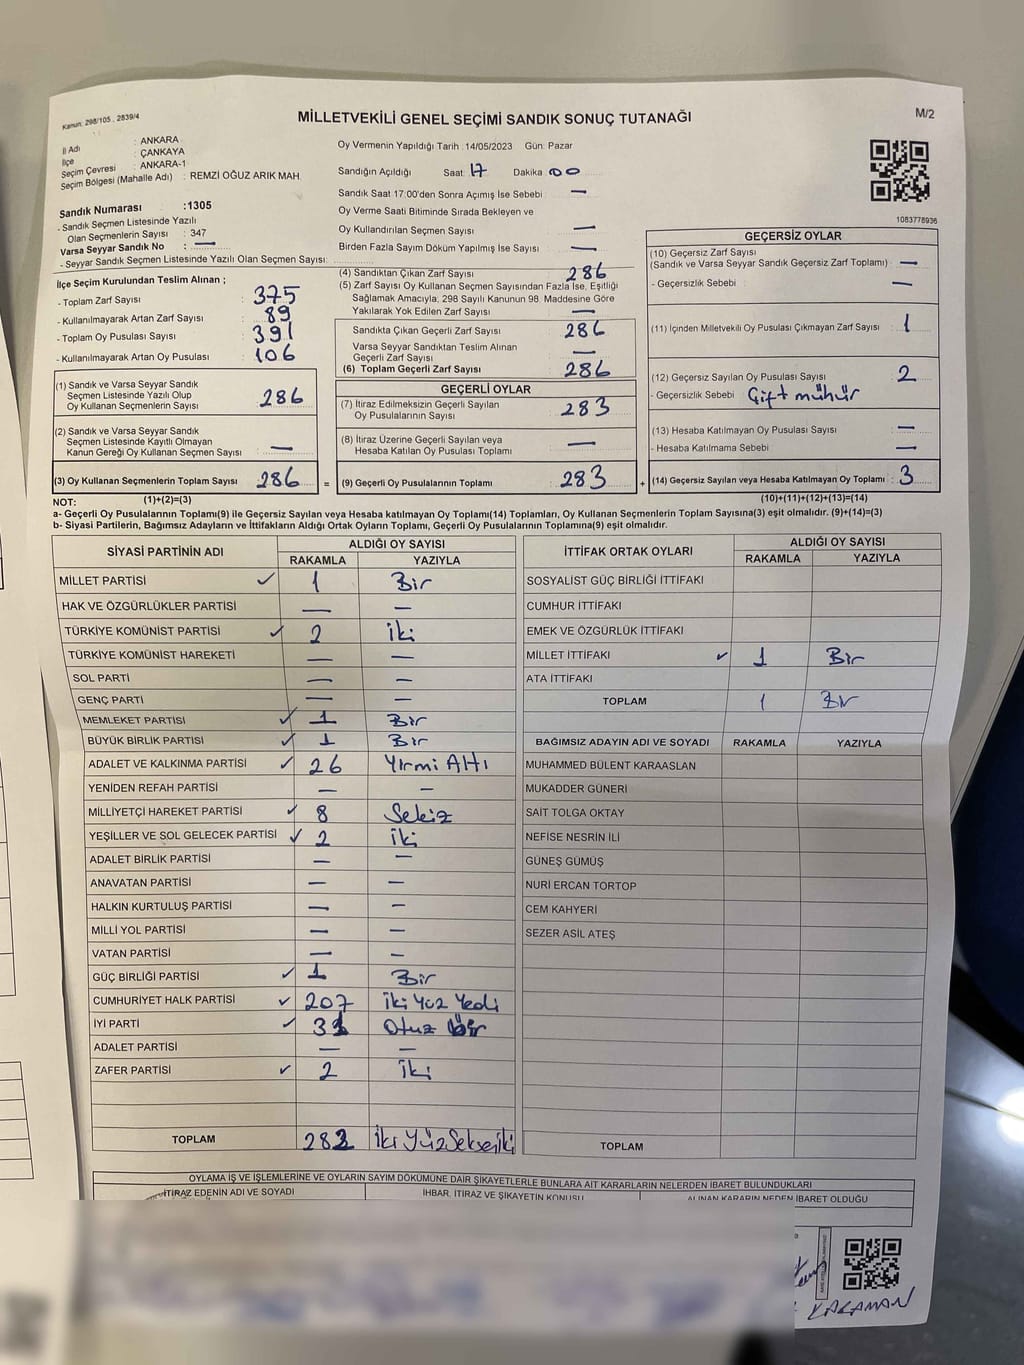 Kanun: 298/105, 2839/4
MİLLETVEKİLİ GENEL SEÇİMİ SANDIK SONUÇ TUTANAĞI
M/2
İl Adı : ANKARA
İlçe : ÇANKAYA
Seçim Çevresi : ANKARA-1
Seçim Bölgesi (Mahalle Adı) : REMZİ OĞUZ ARIK MAH.
Sandık Numarası :1305
- Sandık Seçmen Listesinde Yazılı
Olan Seçmenlerin Sayısı : 347
Varsa Seyyar Sandık No : —
- Seyyar Sandık Seçmen Listesinde Yazılı Olan Seçmen Sayısı:
Oy Vermenin Yapıldığı Tarih :14/05/2023 Gün: Pazar
Sandığın Açıldığı Saat: 17 Dakika 00
Sandık Saat 17:00'den Sonra Açımış İse Sebebi —
Oy Verme Saati Bitiminde Sırada Bekleyen ve
Oy Kullandırılan Seçmen Sayısı —
Birden Fazla Sayım Döküm Yapılmış İse Sayısı —
1083778936
İlçe Seçim Kurulundan Teslim Alınan ;
- Toplam Zarf Sayısı : 375
- Kullanılmayarak Artan Zarf Sayısı : 89
- Toplam Oy Pusulası Sayısı : 391
- Kullanılmayarak Artan Oy Pusulası : 106
(1) Sandık ve Varsa Seyyar Sandık
Seçmen Listesinde Yazılı Olup
Oy Kullanan Seçmenlerin Sayısı : 286
(2) Sandık ve Varsa Seyyar Sandık
Seçmen Listesinde Kayıtlı Olmayan
Kanun Gereği Oy Kullanan Seçmen Sayısı : —
(3) Oy Kullanan Seçmenlerin Toplam Sayısı : 286 =
(4) Sandıktan Çıkan Zarf Sayısı 286
(5) Zarf Sayısı Oy Kullanan Seçmen Sayısından Fazla İse, Eşitliği
Sağlamak Amacıyla, 298 Sayılı Kanunun 98. Maddesine Göre
Yakılarak Yok Edilen Zarf Sayısı : —
Sandıkta Çıkan Geçerli Zarf Sayısı : 286
Varsa Seyyar Sandıktan Teslim Alınan
Geçerli Zarf Sayısı : —
(6) Toplam Geçerli Zarf Sayısı : 286
GEÇERLİ OYLAR
(7) İtiraz Edilmeksizin Geçerli Sayılan
Oy Pusulalarının Sayısı : 283
(8) İtiraz Üzerine Geçerli Sayılan veya
Hesaba Katılan Oy Pusulası Toplamı : —
(9) Geçerli Oy Pusulalarının Toplamı : 283 +
GEÇERSİZ OYLAR
(10) Geçersiz Zarf Sayısı
(Sandık ve Varsa Seyyar Sandık Geçersiz Zarf Toplamı) : —
- Geçersizlik Sebebi : —
(11) İçinden Milletvekili Oy Pusulası Çıkmayan Zarf Sayısı : 1
(12) Geçersiz Sayılan Oy Pusulası Sayısı : 2
- Geçersizlik Sebebi Çift mühür
(13) Hesaba Katılmayan Oy Pusulası Sayısı : —
- Hesaba Katılmama Sebebi : —
(14) Geçersiz Sayılan veya Hesaba Katılmayan Oy Toplamı : 3
NOT: (1)+(2)=(3) (10)+(11)+(12)+(13)=(14)
a- Geçerli Oy Pusulalarının Toplamı(9) ile Geçersiz Sayılan veya Hesaba katılmayan Oy Toplamı(14) Toplamları, Oy Kullanan Seçmenlerin Toplam Sayısına(3) eşit olmalıdır. (9)+(14)=(3)
b- Siyasi Partilerin, Bağımsız Adayların ve İttifakların Aldığı Ortak Oyların Toplamı, Geçerli Oy Pusulalarının Toplamına(9) eşit olmalıdır.
SİYASİ PARTİNİN ADI ALDIĞI OY SAYISI
RAKAMLA YAZIYLA
MİLLET PARTİSİ ✓ 1 Bir
HAK VE ÖZGÜRLÜKLER PARTİSİ — —
TÜRKİYE KOMÜNİST PARTİSİ ✓ 2 İki
TÜRKİYE KOMÜNİST HAREKETİ — —
SOL PARTİ — —
GENÇ PARTİ — —
MEMLEKET PARTİSİ ✓ 1 Bir
BÜYÜK BİRLİK PARTİSİ ✓ 1 Bir
ADALET VE KALKINMA PARTİSİ ✓ 26 Yirmi Altı
YENİDEN REFAH PARTİSİ — —
MİLLİYETÇİ HAREKET PARTİSİ ✓ 8 Sekiz
YEŞİLLER VE SOL GELECEK PARTİSİ ✓ 2 İki
ADALET BİRLİK PARTİSİ — —
ANAVATAN PARTİSİ — —
HALKIN KURTULUŞ PARTİSİ — —
MİLLİ YOL PARTİSİ — —
VATAN PARTİSİ — —
GÜÇ BİRLİĞİ PARTİSİ ✓ 1 Bir
CUMHURİYET HALK PARTİSİ ✓ 207 İki Yüz Yedi
İYİ PARTİ ✓ 31 Otuz bir
ADALET PARTİSİ — —
ZAFER PARTİSİ ✓ 2 İki
TOPLAM 282 İki YüzSeksenİki
İTTİFAK ORTAK OYLARI ALDIĞI OY SAYISI
RAKAMLA YAZIYLA
SOSYALİST GÜÇ BİRLİĞİ İTTİFAKI
CUMHUR İTTİFAKI
EMEK VE ÖZGÜRLÜK İTTİFAKI
MİLLET İTTİFAKI ✓ 1 Bir
ATA İTTİFAKI
TOPLAM 1 Bir
BAĞIMSIZ ADAYIN ADI VE SOYADI RAKAMLA YAZIYLA
MUHAMMED BÜLENT KARAASLAN
MUKADDER GÜNERİ
SAİT TOLGA OKTAY
NEFİSE NESRİN İLİ
GÜNEŞ GÜMÜŞ
NURİ ERCAN TORTOP
CEM KAHYERİ
SEZER ASİL ATEŞ
TOPLAM
OYLAMA İŞ VE İŞLEMLERİNE VE OYLARIN SAYIM DÖKÜMÜNE DAİR ŞİKAYETLERLE BUNLARA AİT KARARLARIN NELERDEN İBARET BULUNDUKLARI
İTİRAZ EDENİN ADI VE SOYADI İHBAR, İTİRAZ VE ŞİKAYETİN KONUSU ALINAN KARARIN NEDEN İBARET OLDUĞU
KARAMAN